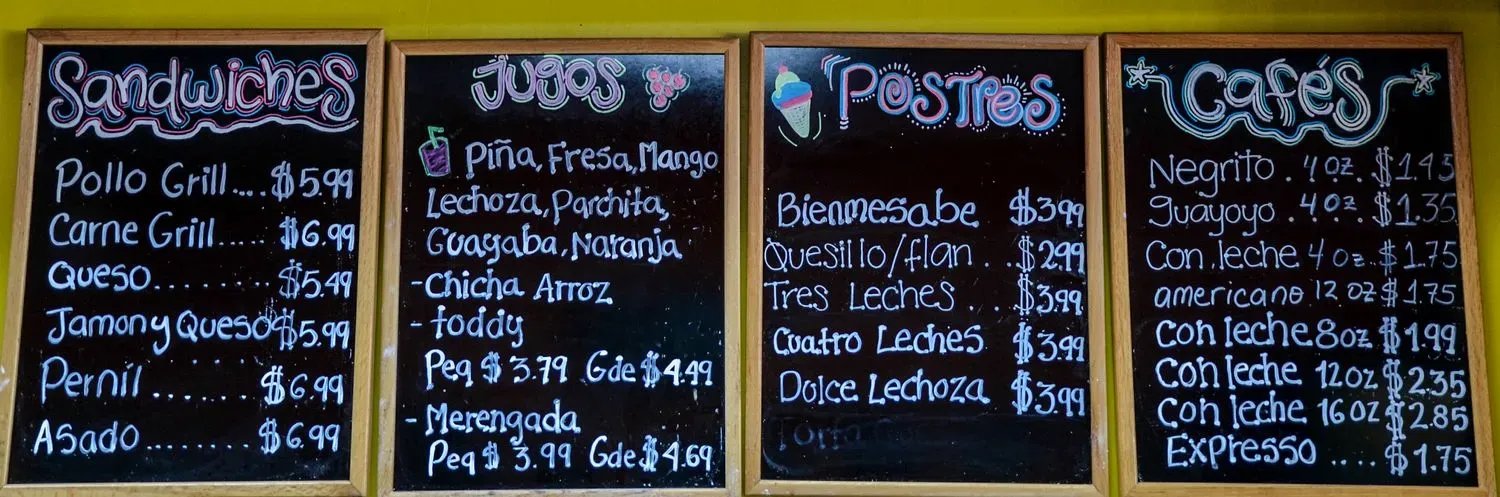 Sandwiches
Pollo Grill.... $5.99
Carne Grill..... $6.99
Queso........ $5.49
Jamon y Queso $5.99
Pernil....... $6.99
Asado....... $6.99
Jugos
Piña, Fresa, Mango
Lechoza, Parchita,
Guayaba, Naranja
- Chicha Arroz
- toddy
Peq $ 3.79 Gde $4.49
- Merengada
Peq $ 3.99 Gde $4.69
Postres
Bienmesabe $3.99
Quesillo/flan . . $2.99
Tres Leches . . $3.99
Cuatro Leches $3.99
Dolce Lechoza $3.99
Torta
Cafés
Negrito . 4 oz. $1.45
guayoyo . 4 oz. $1.35
Con leche 4 oz.. $1.75
americano 12 oz $1.75
con leche 8oz $1.99
con leche 12oz $2.35
con leche 16oz $2.85
Expresso .... $1.75